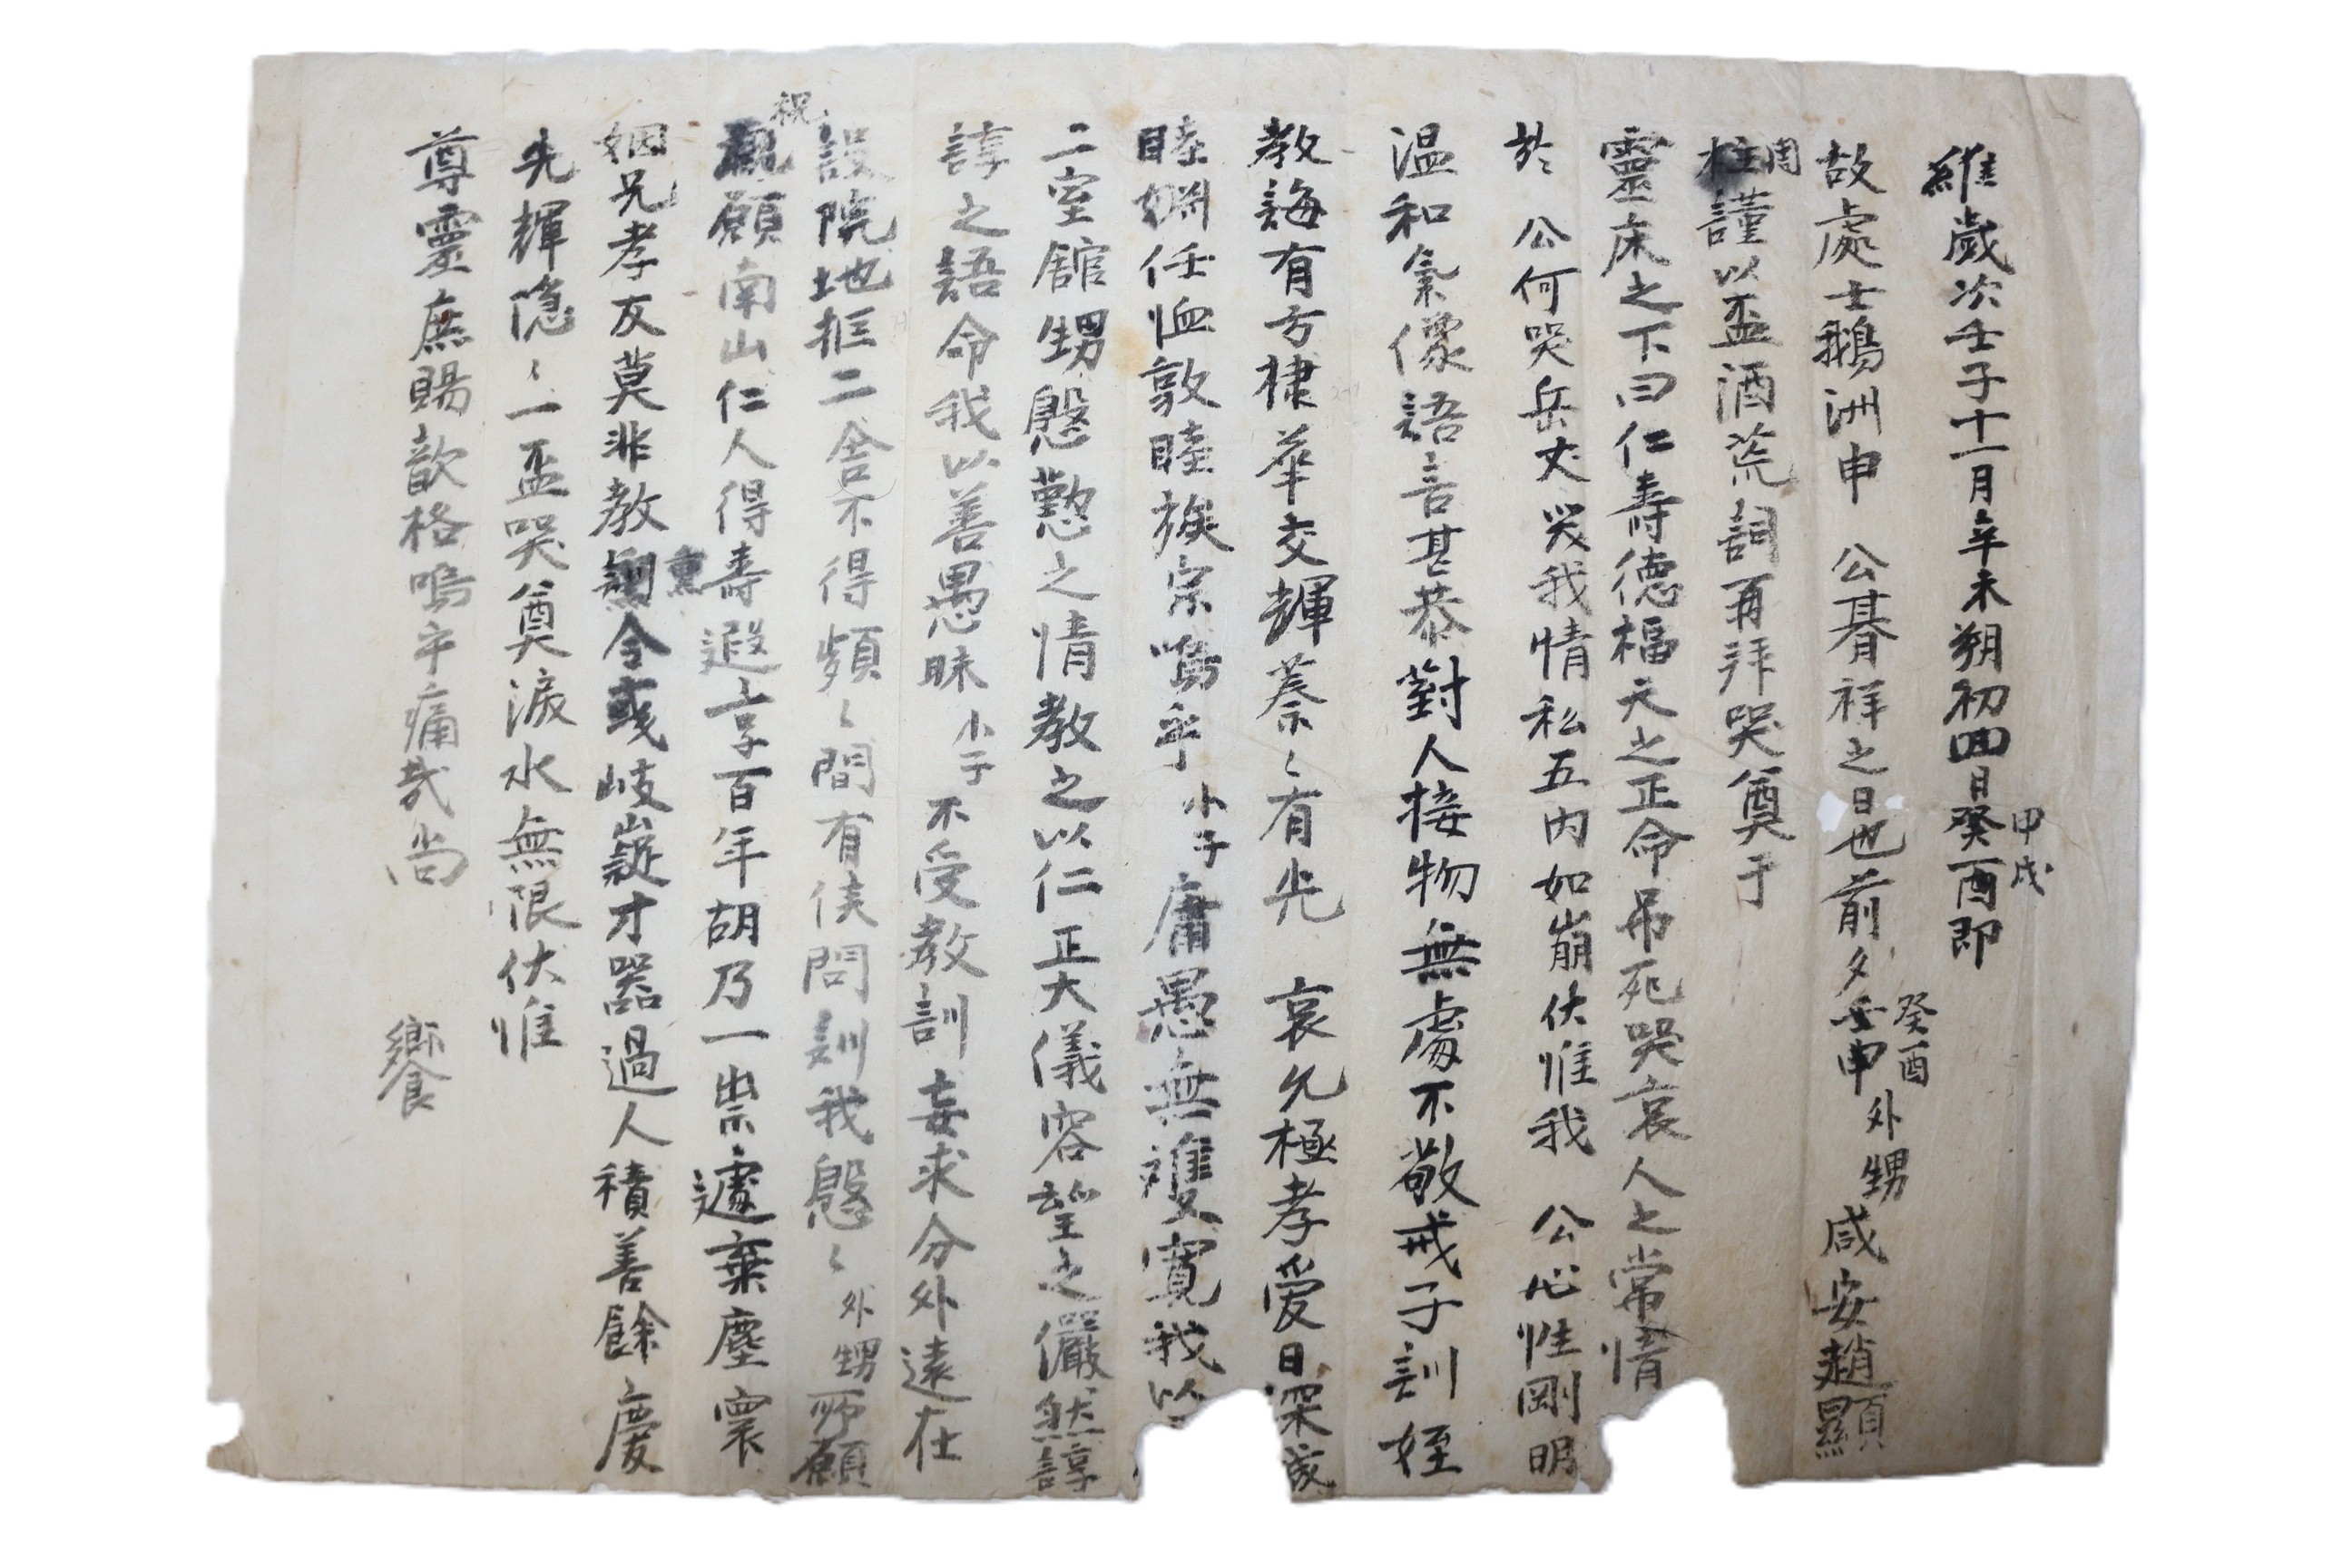 維歲次壬子十一月辛未朔初四日癸酉即
甲戌
故處士鵝洲申 公朞祥之日也前夕壬申外甥咸安趙顯
癸酉
柱謹以盃酒荒詞再拜哭奠于
周
靈床之下曰仁壽德福天之正命吊死哭哀人之常情
於 公何哭岳丈哭我情私五內如崩伏惟我 公心性剛明
温和氣像語言甚恭對人接物無處不敬戒子訓姪
教誨有方棣華交輝蓁〻有光 哀允極孝愛日深歲
睦婣任恤敦睦族宗嗚乎小子庸愚無雙寬我以
二室舘甥慇懃之情教之以仁正大儀容望之儼然諄
諄之語命我以善愚昧小子不受教訓妄求分外遠在
設院地拒二舍不得頻〻間有侯問訓我慇〻外甥所願
祝
願南山仁人得壽遐享百年胡乃一祟遽棄塵寰
姻兄孝友莫非教訓令彧岐嶷才器過人積善餘慶
薫
先輝隐〻一盃哭奠淚水無限伏惟
尊靈庶賜歆格嗚乎痛哉尚
饗